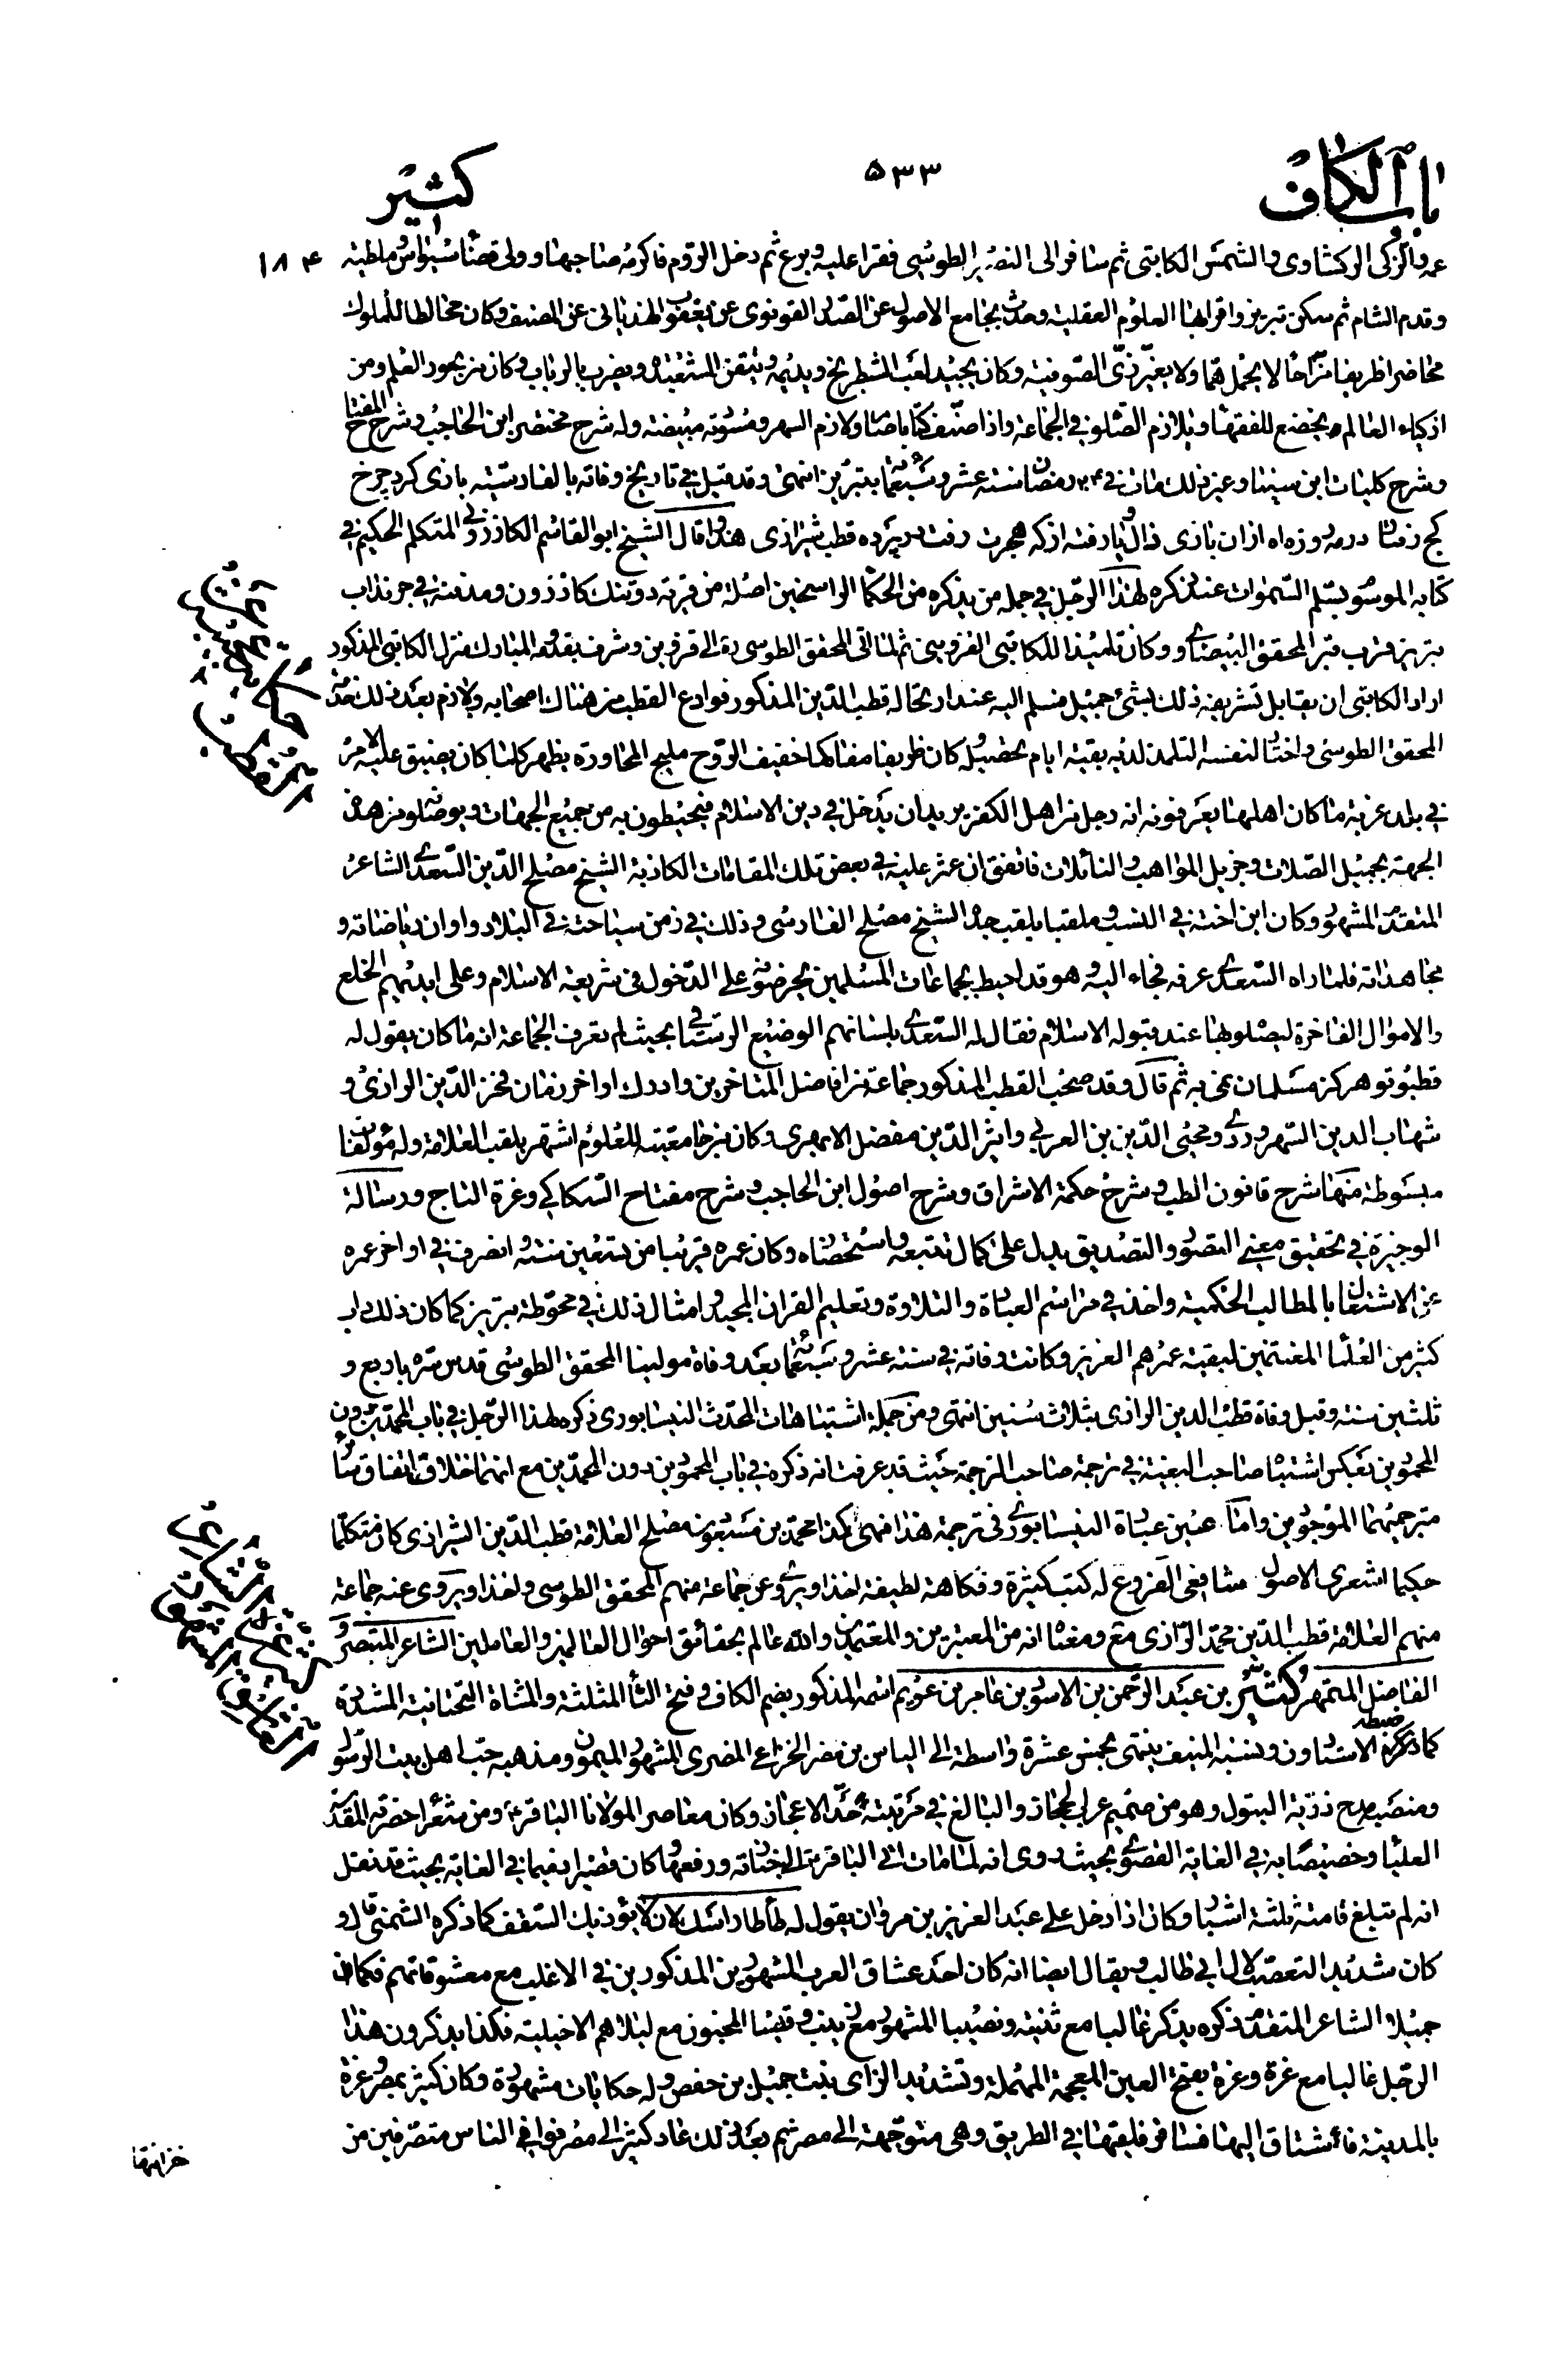 باب الكاف
٥٣٣
كثير
عمه والزكى الركشاوى والشمس الكاتبى ثم سافر الى النصير الطوسى فقرا عليه وبرع ثم دخل الروم فاكرمه صاحبها وولى قضا سيواس وملطية
١٨٤
وقدم الشام ثم سكن تبريز واقرابها العلوم العقلية وحدث بجامع الاصول عن الصدر القونوى عن يعقوب الهذبانى عن المصنف وكان مخالطا للملوك
محاضرا ظريفا مزاحا لا يحمل هما ولا يغير زى الصوفية وكان يجيد لعب الشطرنج ويديمه ويتقن الشعبذة ويضرب بالرباب وكان من بحور العلم ومن
اذكياء العالم ويخضع للفقهاء ويلازم الصلوة فى الجماعة واذا صنف كتابا صام ولازم السهر ومسودته مبيضته وله شرح مختصر ابن الحاجب وشرح المفتاح
وشرح كليات ابن سينا وغير ذلك مات فى ٢٤ رمضان سنة عشر وسبعمائة بتبريز انتهى وقد قيل فى تاريخ وفاته بالفارسية بازى كرد چرخ
كج رفتار در مه روزه اه ازان بازى ذال ويا رفته از كه هجرت رفت در پرده قطب شيرازى هذا وقال الشيخ ابو القاسم الكازرونى المتكلم الحكيم فى
كتابه الموسوم بسلم السموات عند ذكره لهذا الرجل فى جمله من يذكره من الحكماء الراسخين اصله من قرية دوتنك كازرون ومدفنه فى جرنداب
تبريز قرب قبر المحقق البيضاوى وكان تلميذا للكاتبى القزوينى ثم لما اتى المحقق الطوسى ره الى قزوين وشرف بقدومه المبارك منزل الكاتبى المذكور
اراد الكاتبى ان يقابل تشريفه ذلك بشئ جميل فسلم اليه عند ارتحاله قطب الدين المذكور فوادع القطب من هناك اصحابه ولازم بعد ذلك خدمة
المحقق الطوسى واختار لنفسه التلمذ لديه بقية ايام تحصيله كان ظريفا مفاكها خفيف الروح مليح المحاورة يظهر كلما كان يضيق عليه الامر
فى بلد غربة ما كان اهلها يعرفونه انه رجل من اهل الكفر يريد ان يدخل فى دين الاسلام فيحيطون به من جميع الجهات ويوصلونه من هذه
الجهة بجميل الصلات وجزيل المواهب والنائلات فاتفق ان عثر عليه فى بعض تلك المقامات الكاذبة الشيخ مصلح الدين السعدى الشاعر
المتقدم المشهور وكان ابن اخته فى النسب وملقبا بلقب جده الشيخ مصلح الفارسى وذلك فى زمن سياحته فى البلاد واوان رياضاته و
مجاهداته فلما راه السعدى عرفه فجاء اليه وهو قد احيط بجماعات المسلمين يحرضونه على الدخول فى شريعة الاسلام وعلى ايديهم الخلع
والاموال الفاخرة ليصلوه بها عند قبوله الاسلام فقال له السعدى بلسانهم الوضيع الرستاقى بحيث لم تعرف الجماعة انه ما كان يقول له
قطبو تو هركز مسلمان نمى به ثم قال وقد صحب القطب المذكور جماعة من افاضل المتاخرين وادرك اواخر زمان فخر الدين الرازى و
شهاب الدين السهروردى ومحيى الدين بن العربى واثير الدين مفضل الابهرى وكان من جامعيته للعلوم اشتهر بلقب العلامة وله مؤلفات
مبسوطة منها شرح قانون الطب وشرح حكمة الاشراق وشرح اصول ابن الحاجب وشرح مفتاح السكاكى وغرة التاج ورسالة
الوجيزة فى تحقيق معنى التصور والتصديق يدل على كمال تتبعه واستحضاره وكان عمره قريبا من سبعين سنة وانصرف فى اواخر عمره
عن الاشتغال بالمطالب الحكمية واخذ فى مراسم العبادة والتلاوة وتعليم القران المجيد وامثال ذلك فى محوطة تبريز كما كان ذلك داب
كثير من العلماء المغتنمين لبقية عمرهم العزيز وكانت وفاته فى سنة عشر وسبعمائة بعد وفاة مولينا المحقق الطوسى قدس سره باربع و
ثلثين سنة وقبل وفاة قطب الدين الرازى بثلاث سنين انتهى ومن جملة اشتباهات المحدث النيسابورى ذكره لهذا الرجل فى باب المحمدين دون
المحمودين بعكس اشتباه صاحب البغية فى ترجمة صاحب الترجمة حيث قد عرفت انه ذكره فى باب المحمودين دون المحمدين مع انهما خلاف اتفاق سائر
مترجميهما الموجودين واما عين عبارة النيسابورى فى ترجمة هذا فهى هكذا محمد بن مسعود بن مصلح العلامة قطب الدين الشيرازى كان متكلما
حكيما اشعرى الاصول شافعى الفروع له كتب كثيرة وفكاهة لطيفة اخذ ويروى عن جماعة منهم المحقق الطوسى واخذ ويروى عنه جماعة
منهم العلامة قطب الدين محمد الرازى مع ومعناه انه من المعتبرين والمعتمدين والله عالم بحقائق احوال العالمين والعاملين الشاعر المتبصر و
الفاضل المتمهر كثير بن عبد الرحمن بن الاسود بن عامر بن عويم اسمه المذكور بضم الكاف وفتح الثاء المثلثة والمثناة التحتانية المشددة
كما ذكره ضبطه الاستادون ونسبه المنيف ينتهى بخمس عشرة واسطة الى الياس بن مضر الخزاعى المضرى المشهور الميمون ومذهبه حب اهل بيت الرسول
ومنصبه مدح ذرية البتول وهو من صميم عرب الحجاز والبالغ فى مرتبته حد الاعجاز وكان معاصر المولانا الباقر ع ومن شعراء حضرته المقدسة
العليا وخصيصا به فى الغاية القصوى بحيث روى انه لما مات اتى الباقر ع الى جنازته ورفعها وكان قصيرا دميما فى الغاية بحيث قد نقل
انه لم تبلغ قامته ثلثة اشبار وكان اذا دخل على عبد العزيز بن مروان يقول له طأطأ راسك لان لا يؤذيك السقف كما ذكره الشمنى قال و
كان شديد التعصب لال ابى طالب ويقال ايضا انه كان احد عشاق العرب المشهورين المذكورين فى الاغلب مع معشوقاتهم فكما ان
جميلا الشاعر المتقدم ذكره يذكر غالبا مع بثينة ونصيبا المشهور مع زينب وقيسا المجنون مع ليلاهم الاخيلية فكذا يذكرون هذا
الرجل غالبا مع عزة وعزة بفتح العين المعجمة المهملة وتشديد الزاى بنت جميل بن حفص وله حكايات مشهورة وكان كثير بمصر وعزة
بالمدينة فاشتاق اليها فسافر فلقيها فى الطريق وهى متوجهة الى مصر ثم بعد ذلك عاد كثير الى مصر فوافى الناس متصرفين من
جنازتها